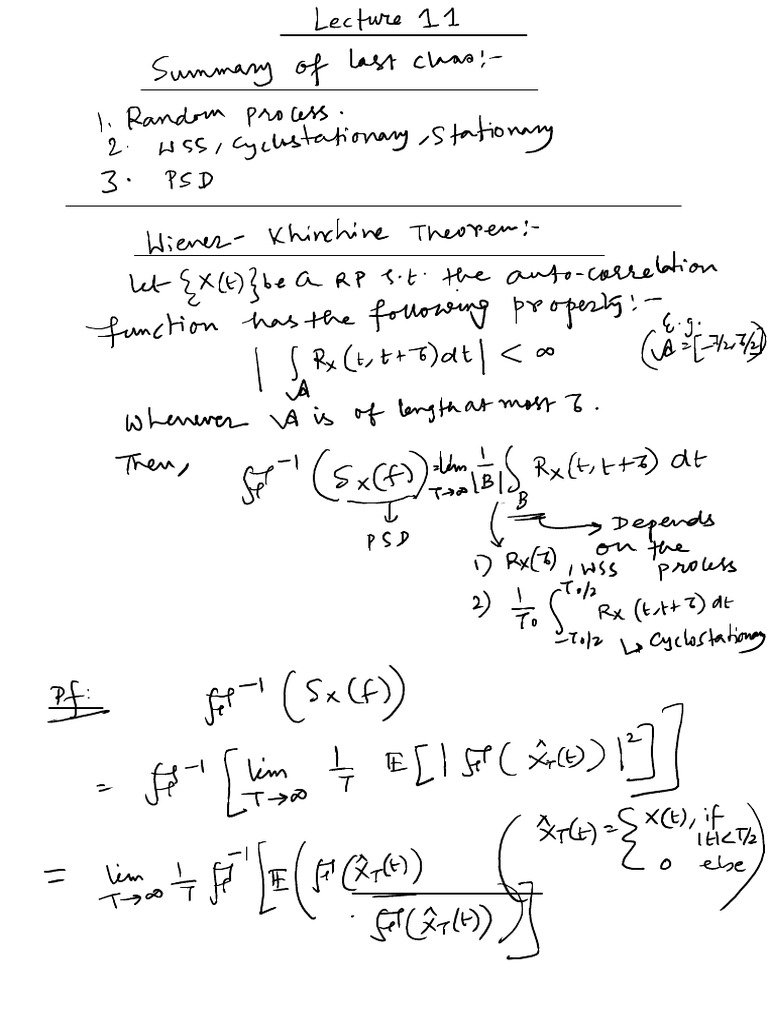 Lecture 11
Summary of last class:-
1. Random process.
2. WSS, Cyclostationary, Stationary
3. PSD
Wiener-Khinchine Theorem:-
Let {X(t)} be a RP s.t. the auto-correlation
function has the following property:-
| ∫_A R_X(t, t+τ) dt | < ∞ (E.g. A = [-τ/2, τ/2])
Whenever A is of length at most τ.
Then, F^{-1}(S_X(f)) = lim_{T→∞} 1/|B| ∫_B R_X(t, t+τ) dt
↓ PSD
→ Depends on the process
1) R_X(τ), WSS
2) 1/T_0 ∫_{-T_0/2}^{T_0/2} R_X(t, t+τ) dt
↳ Cyclostationary
Pf: F^{-1}(S_X(f))
= F^{-1}[ lim_{T→∞} 1/T E[ |F(X̂_T(t))|^2 ] ]
(X̂_T(t) = { X(t), if |t|<T/2
0 else)
= lim_{T→∞} 1/T F^{-1}[ E( F(X̂_T(t))
\overline{F(X̂_T(t))} ) ]